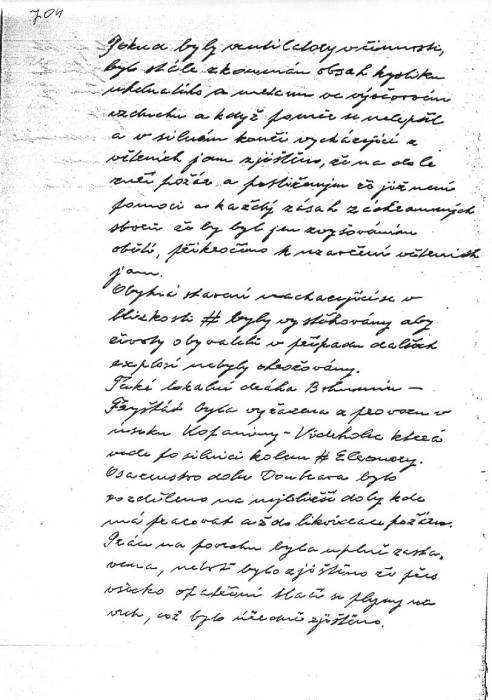 704
Pokud byly ventilátory v činnosti,
bylo stále zkoumán obsah kysliku
uhelnatého, a metanu ve výdechovém
vzduchu a když poměr se nelepšil
a v silném kouři vycházející z
větrních jam zjištěno, že na dole
zuří požár a postiženým že již není
pomoci a každý zásah záchranných
sborů že by byl jen zvyšováním
obětí, přikročeno k uzavření větrních
jam.
Obytná stavení nacházející se v
blízkosti # byly vystěhovány aby
životy obyvatelů v případu dalších
explosí nebyly ohrožovány.
Také lokalní dráha Bohumín –
Fryštát byla vyřazena z provozu v
úseku Kopaniny – Vdeholec která
vede po silnici kolem # Eleonory.
Osazenstvo dolu Doubrava bylo
rozděleno na nejbližší doly kde
má pracovat až do likvidace požáru.
Práce na povrchu byla uplně zasta-
vena, neboť bylo zjištěno že přes
všecko opatření tlačí se plyny na
vrch, což bylo úředně zjištěno.